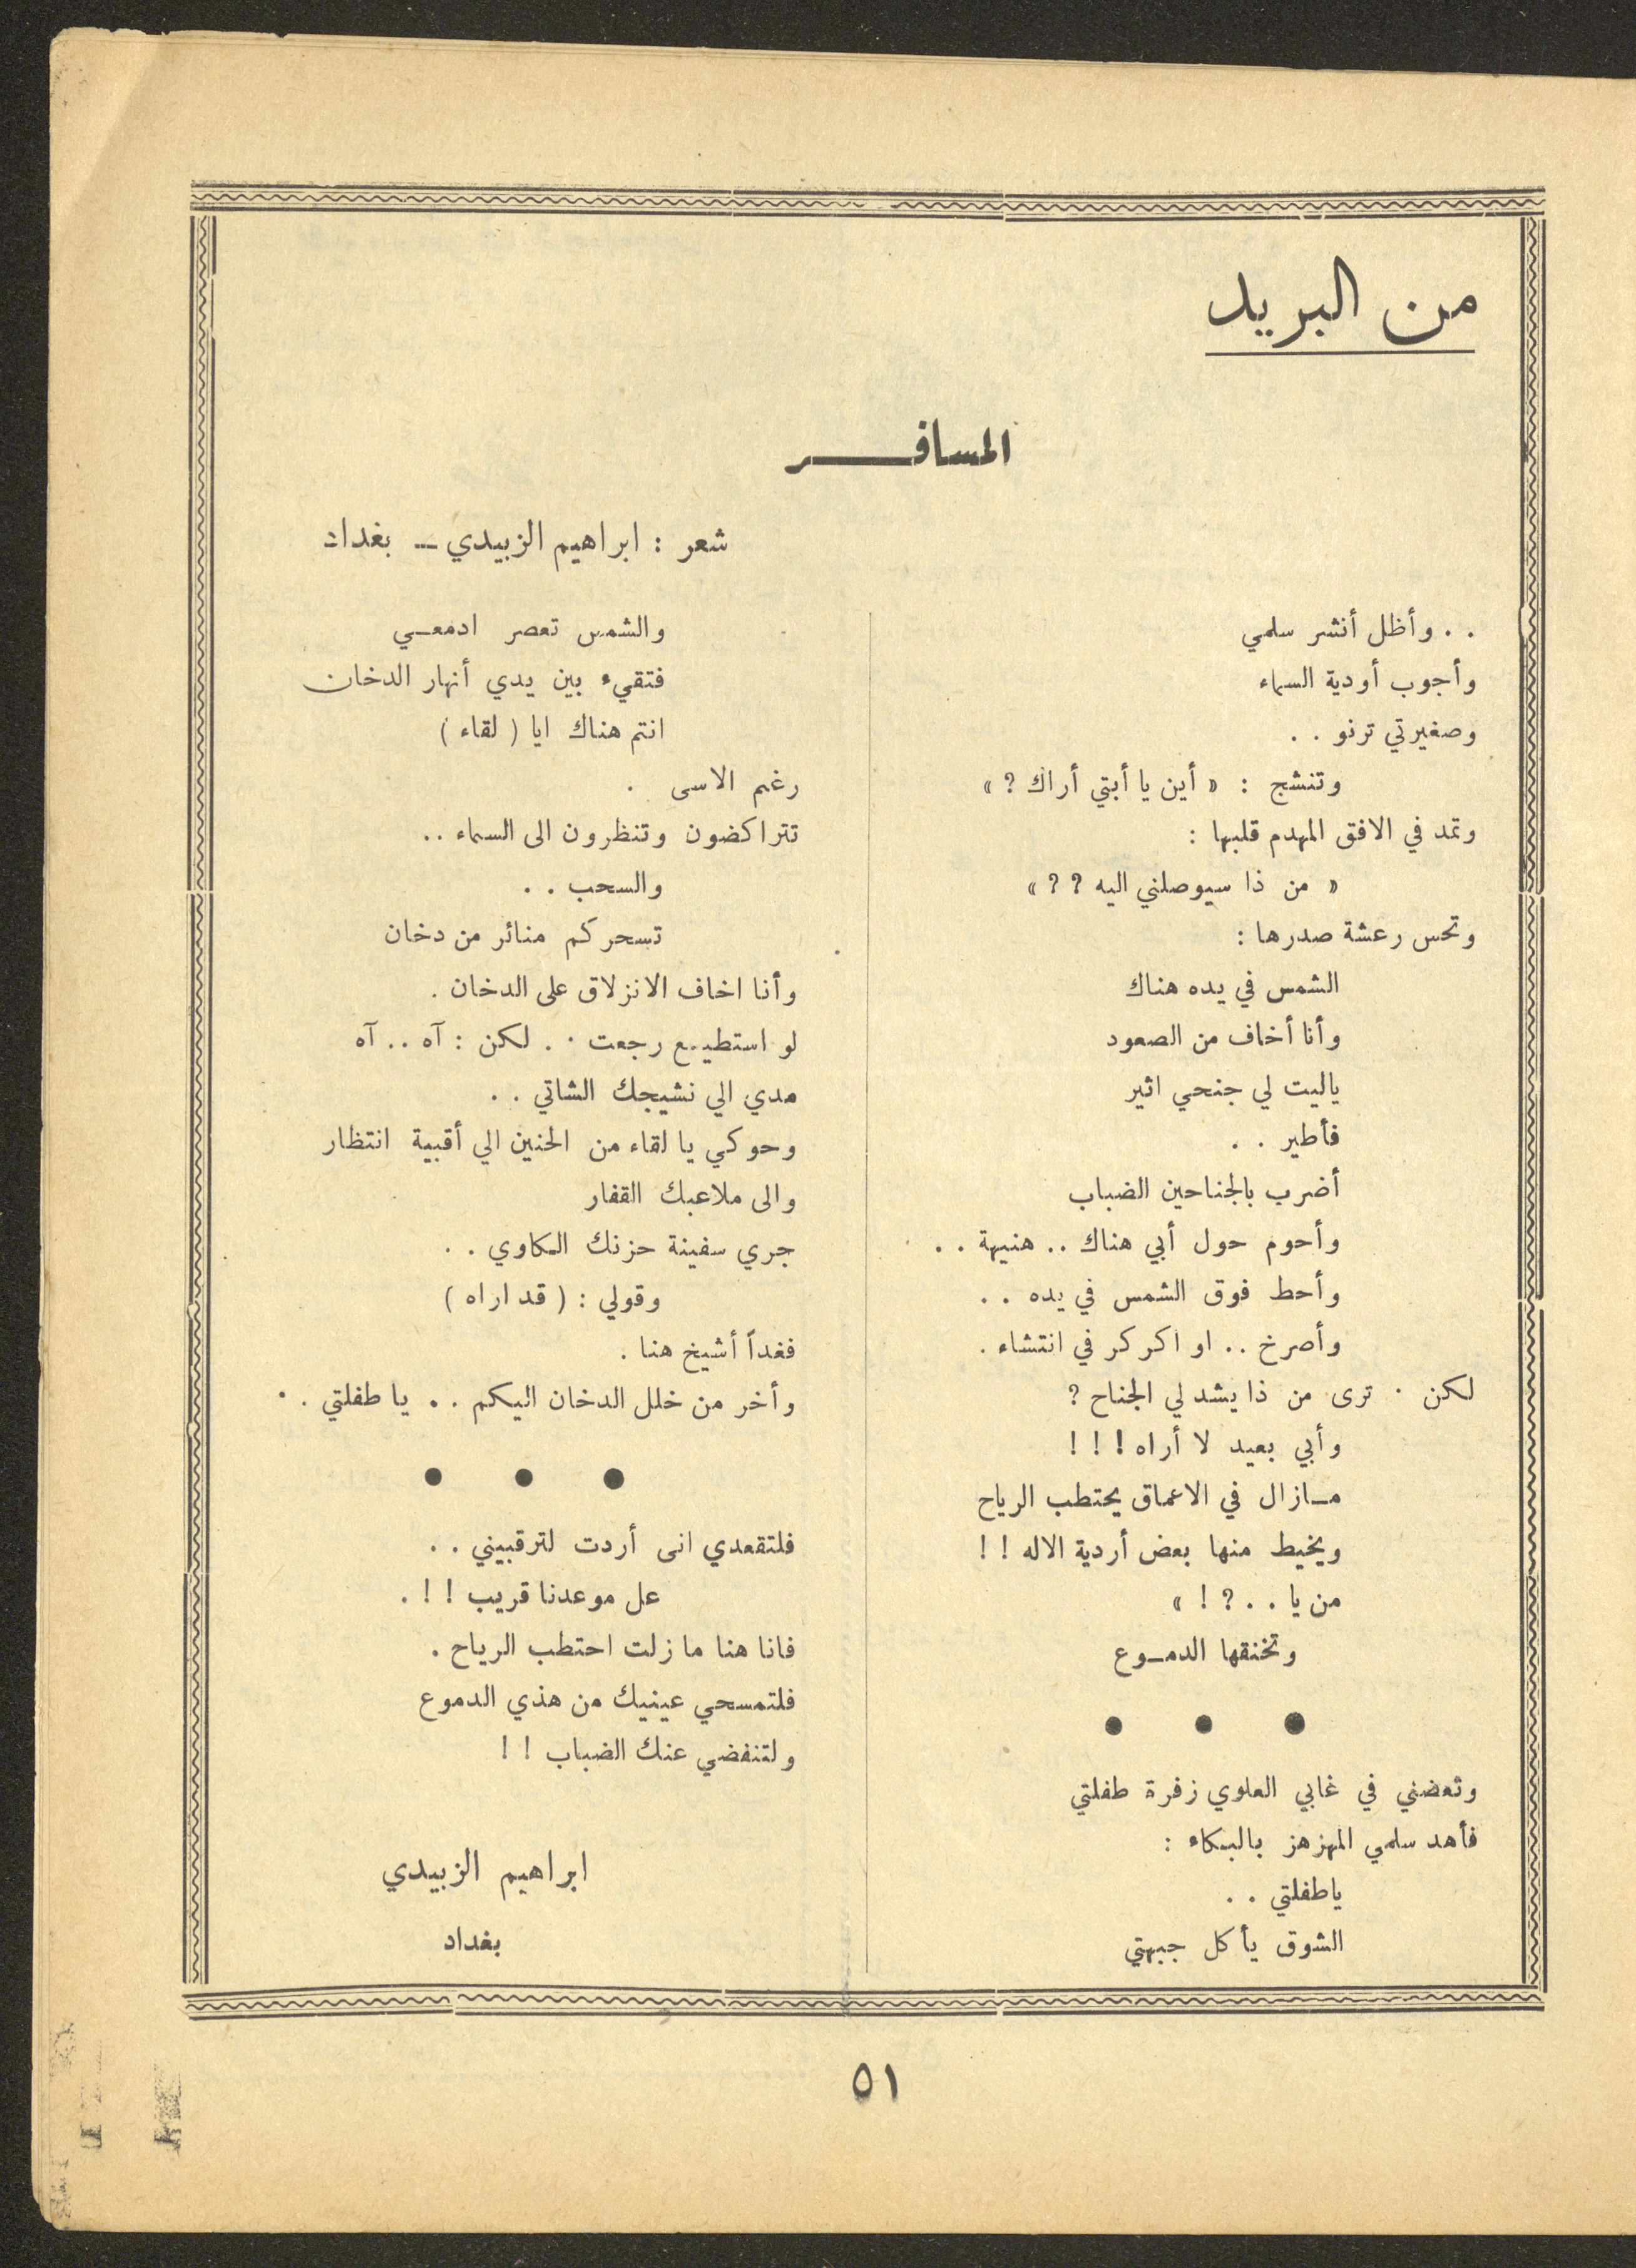 من البريد
المسافـــر
شعر : ابراهيم الزبيدي — بغداد
. . وأظل أنشر سلمي
وأجوب أودية السماء
وصغيرتي ترنو . .
وتنشج : « أين يا أبتي أراك ؟ »
وتمد في الافق المهدم قلبها :
« من ذا سيوصلني اليه ؟ ؟ »
وتحس رعشة صدرها :
الشمس في يده هناك
وأنا أخاف من الصعود
ياليت لي جنحي اثير
فأطير . .
أضرب بالجناحين الضباب
وأحوم حول أبي هناك . . هنيهة . .
وأحط فوق الشمس في يده . .
وأصرخ . . او اكركر في انتشاء .
لكن . ترى من ذا يشد لي الجناح ؟
وأبي بعيد لا أراه ! ! !
مـازال في الاعماق يحتطب الرياح
ويخيط منها بعض أردية الاله ! !
من يا . . ؟ ! »
وتخنقها الدمـوع
● ● ●
وتعضني في غابي العلوي زفرة طفلتي
فأهد سلمي المهزهز بالبكاء :
ياطفلتي . .
الشوق يأكل جبهتي
والشمس تعصر ادمعـي
فتقيء بين يدي أنهار الدخان
انتم هناك ايا ( لقاء )
رغم الاسى .
تتراكضون وتنظرون الى السماء . .
والسحب . .
تسحركم منائر من دخان
وأنا اخاف الانزلاق على الدخان .
لو استطيـع رجعت . . لكن : آه . . آه
مدي الي نشيجك الشاتي . .
وحوكي يا لقاء من الحنين الي أقبية انتظار
والى ملاعبك القفار
جري سفينة حزنك المكاوي . .
وقولي : ( قد اراه )
فغداً أشيخ هنا .
وأخر من خلل الدخان اليكم . . يا طفلتي . .
● ● ●
فلتقعدي انى أردت لترقبيني . .
عل موعدنا قريب ! ! .
فانا هنا ما زلت احتطب الرياح .
فلتمسحي عينيك من هذي الدموع
ولتنفضي عنك الضباب ! !
ابراهيم الزبيدي
بغداد
٥١